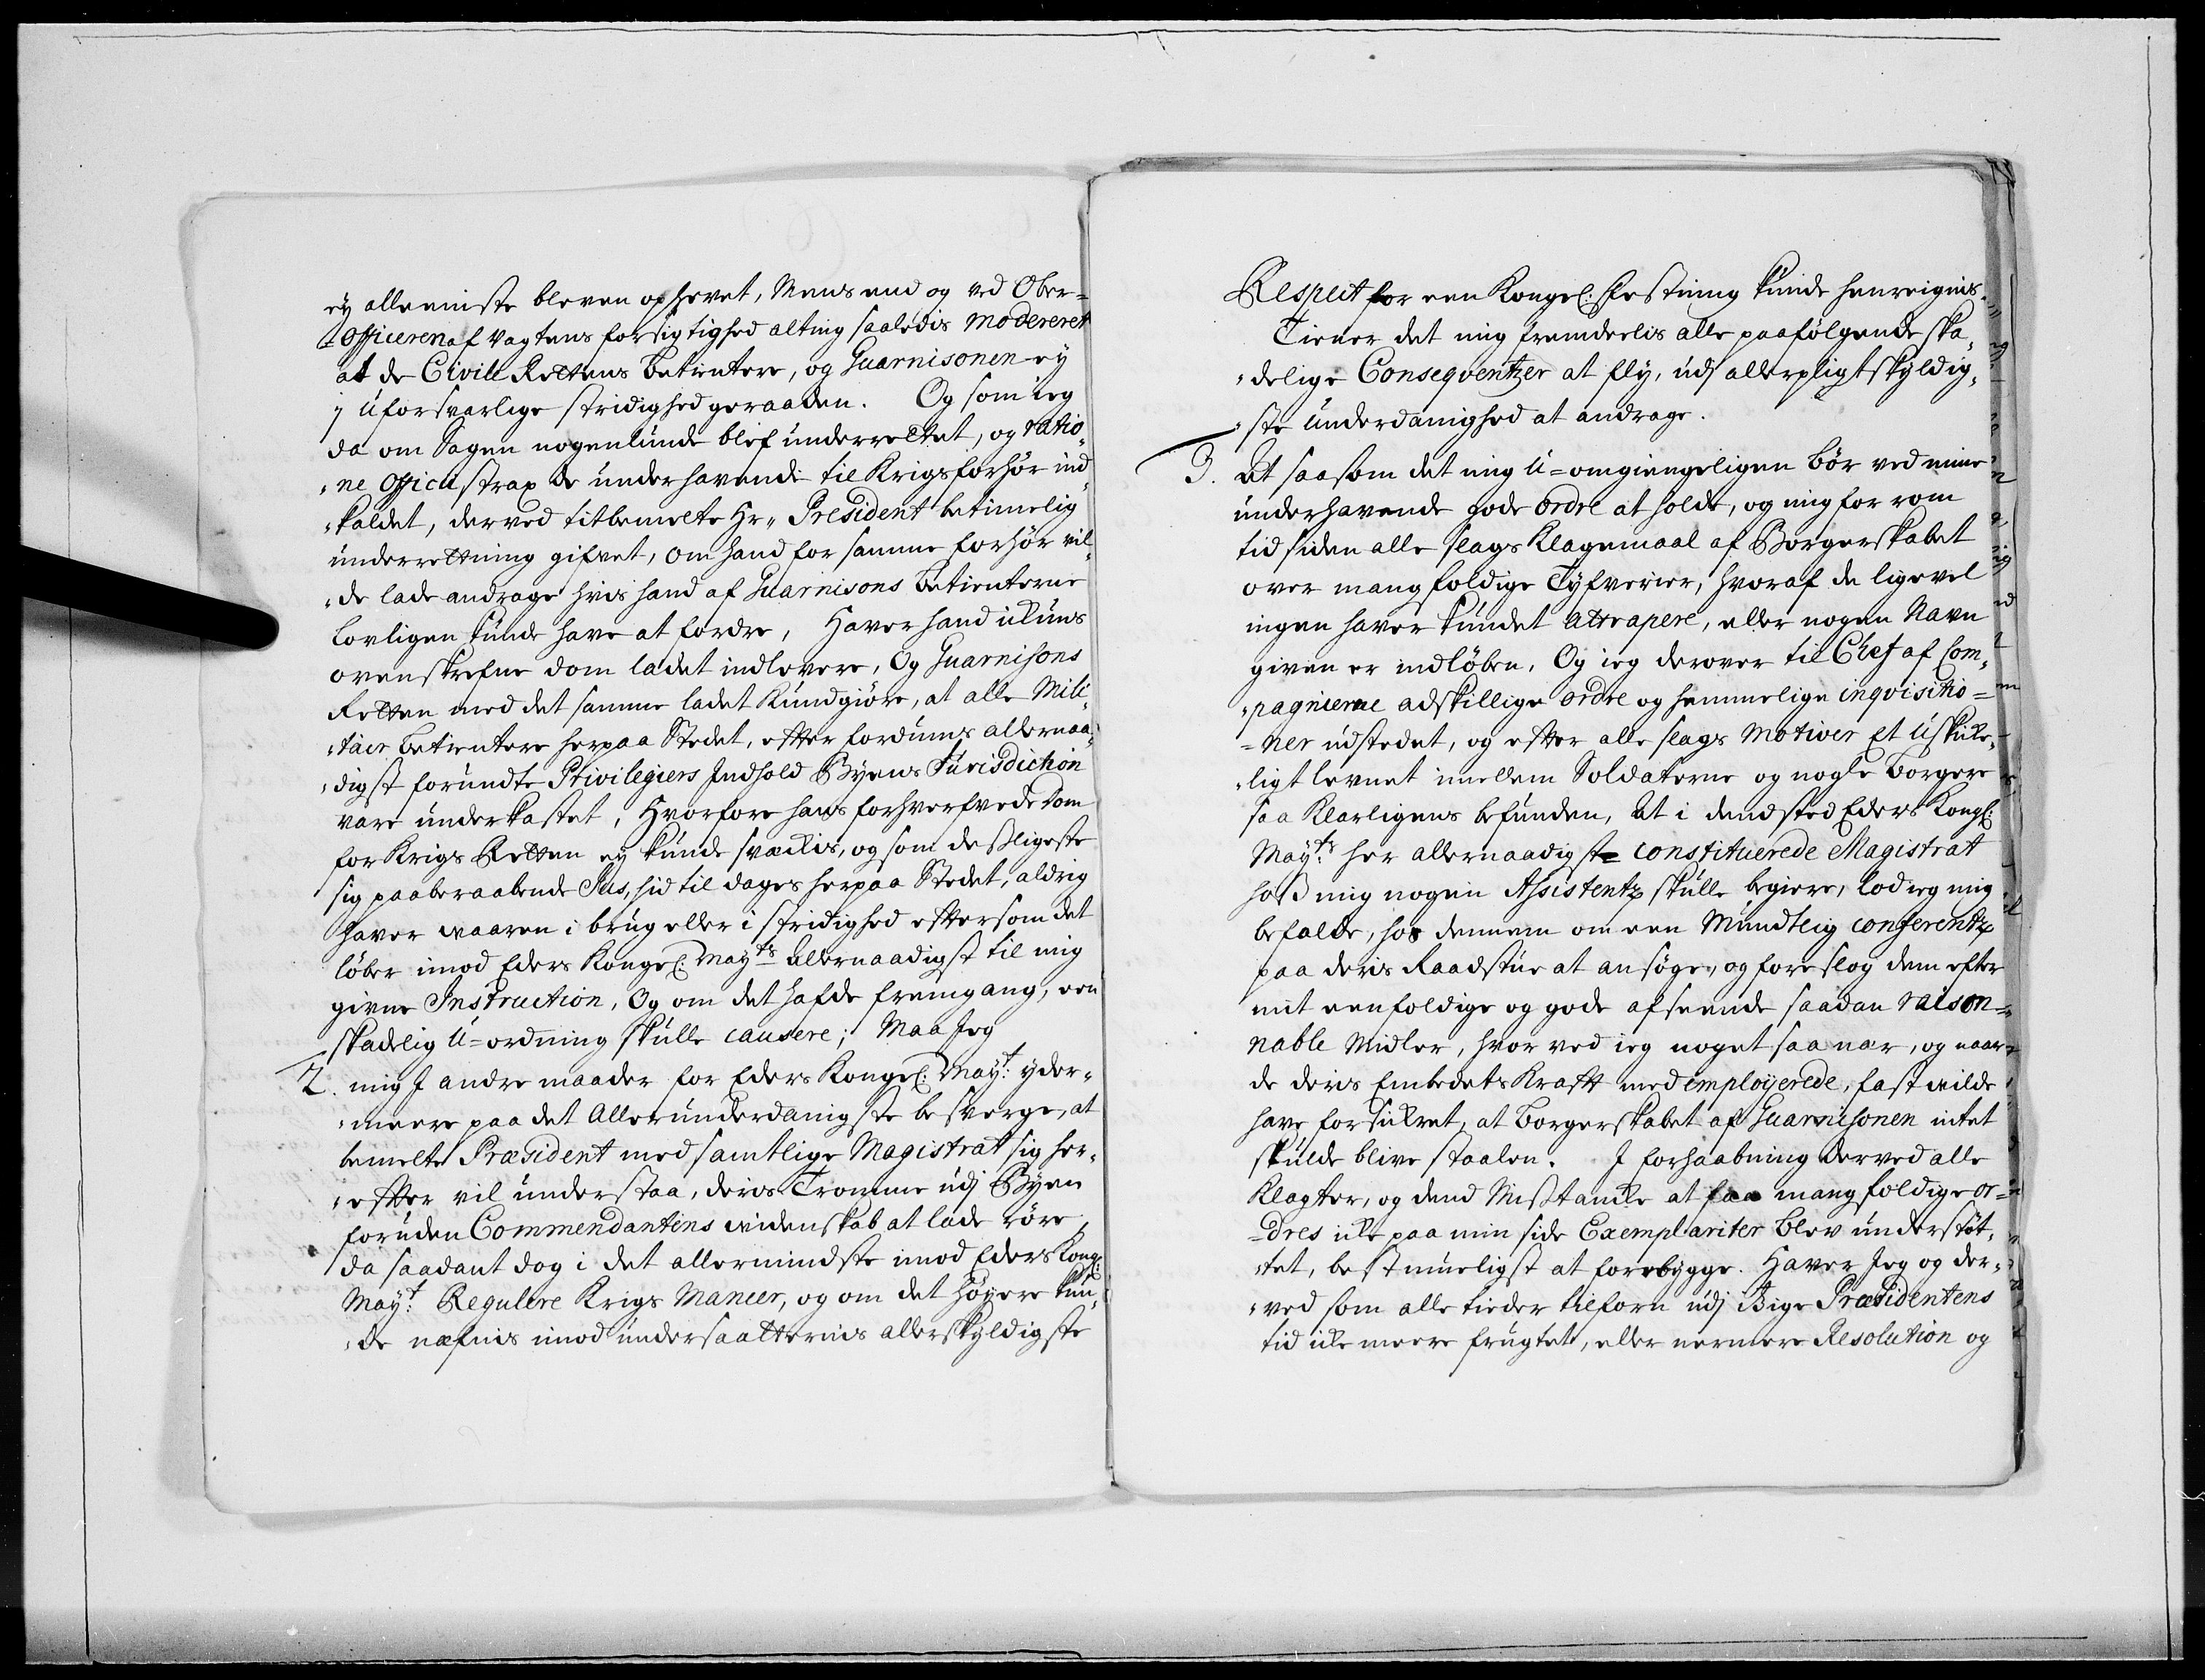 ey alleeniste bleven ophevet, Mens end og ved Ober=
=Officeren af Vagtens forsigtighed alting saaledis modereret
at de Civill Rettens betientere, og Guarnisonen ey
j uforsvarlige stridighed geraaden. Og som ieg
da om Sagen nogenlunde blef underrettet, og ratio„
„ne Officii strax de underhavende til Krigsforhör ind„
„kaldet, derved titbemelte Hr„ President betimelig
underretning gifvet, om hand for samme forhör vil„
„de lade andrage hvis hand af Guarnisons betienterne
lovligen kunde have at fordre, Haver hand icluns
ovenskrefne dom ladet indlevere, Og Guarnisons
Retten med det samme ladet Kundgiöre, at alle Mili„
„tair betientere herpaa Stedet, efter fordums allernaa„
„digst forundte Privilegiers Indhold Byens Jurisdiction
vare underkastet, Hvorfore hans forhverfvede dom
for Krigs Retten ey kunde svækis, og som desligeste
sig paaberaabende Jus, hid til dages herpaa Stedet, aldrig
haver vaaren i brug eller i stridighed eftersom det
löber imod Eders Kongel: Mayts allernaadigst til mig
givne Instruction, Og om det hafde fremgang, een
skadelig U=ordning skulle causere; Maa Jeg
2. mig J andre maader for Eders Kongel: Mayt: yder„
„meere paa det Allerunderdanigste besverge, at
bemelte Præsident med samtlige Magistrat sig her„
„efter vil understaa, deris Tromme udj Byen
foruden Commendantens videnskab at lade röre,
da saadant dog i det allermindste imod Eders Kongl:
Mayt: Regulere Krigs Maneer, og om det höyere kun„
„de næfnis imod undersaatternis allerskyldigste
Respect for een Kongel: Festning kunde henreignis.
Tiener det mig fremdeelis alle paafölgende ska„
„delige Conseqventzer at fly, udj allerpligtskyldig„
„ste underdanighed at andrage.
3. At saasom det mig U=omgiengeligen bör ved mine
underhavende gode ordre at holde, og mig for rom
tid siden alle slags Klagemaal af Borgerskabet
over mangfoldige Tyfverier, hvoraf de ligevel
ingen haver kundet attrapere, eller nogen Navn
given er indlöben, Og ieg derover til Chef af Com„
„pagnierne adskillige ordre og hemmelige inqvisitio=
=ner udstedet, og efter alle slags Motiver Et Uskike„
„ligt levnet imellem Soldaterne og nogle borgere
saa Klarligens befunden, At i dend sted Eders Kongl:
Mayts: her allernaadigste constituerede Magistrat
hoß mig nogen Assistentz skulle begiere, lod ieg mig
befalde, hos dennem om een Mundtlig conferentz
paa deris Raadstue at ansöge, og foreslog dem efter
mit eenfoldige og gode afseende saadan raison=
nable Midler, hvor ved ieg noget saa nær, og naar
de deris Embedets Krafft med employerede, fast vilde
have forsikret, at borgerskabet af Guarnisonen intet
skulde blive staalen. J forhaabning derved alle
Klagter, og dend Mistancke at faa mangfoldige or=
=dres icke paa min side Exemplariter blev understöt„
„tet, best mueligst at forebygge. Haver Jeg og der„
„ved som alle tieder tilforn udj Bige Præsidentens
tid icke meere frugtet, eller nermere Resolution og